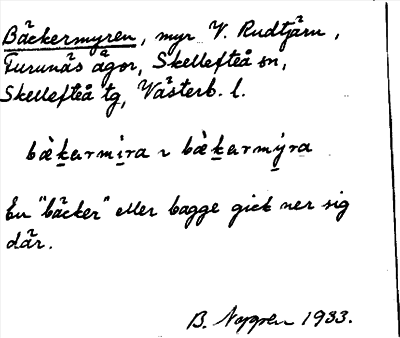 Bäckermyren, myr V. Rudtjärn,
Furunäs ägor, Skellefteå sn,
Skellefteå tg, Västerb. l.
bè̱karmi̱ra ~ bè̱karmý̱ra
En "bäcker" eller bagge gick ner sig
där.
B. 1933.